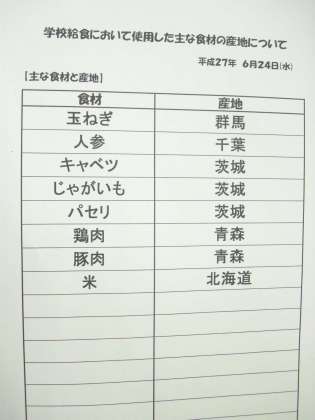 学校給食において使用した主な食材の産地について
平成27年 6月24日(水)
[主な食材と産地]
食材 産地
玉ねぎ 群馬
人参 千葉
キャベツ 茨城
じゃがいも 茨城
パセリ 茨城
鶏肉 青森
豚肉 青森
米 北海道